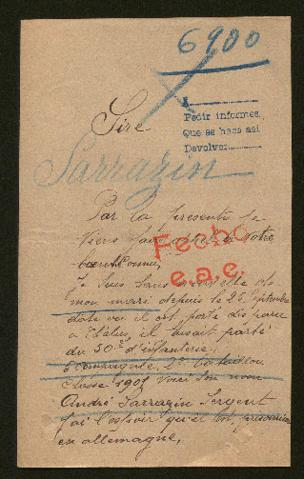 6900
Sire
A
Pedir informes,
Que se haga asi
Devolver
Sarrazin
Par la présente je
viens faire appel à votre
Fecho
e.a.e.
Je suis sans nouvelle de
mon mari depuis le 26 septembre
date où il est porté disparu
à il faisait partie
du 50e d'infanterie
2e bataillon
Classe 1901 voici son nom
André Sarrazin Sergent
j'ai l'espoir qu'il est prisonnier
en allemagne,